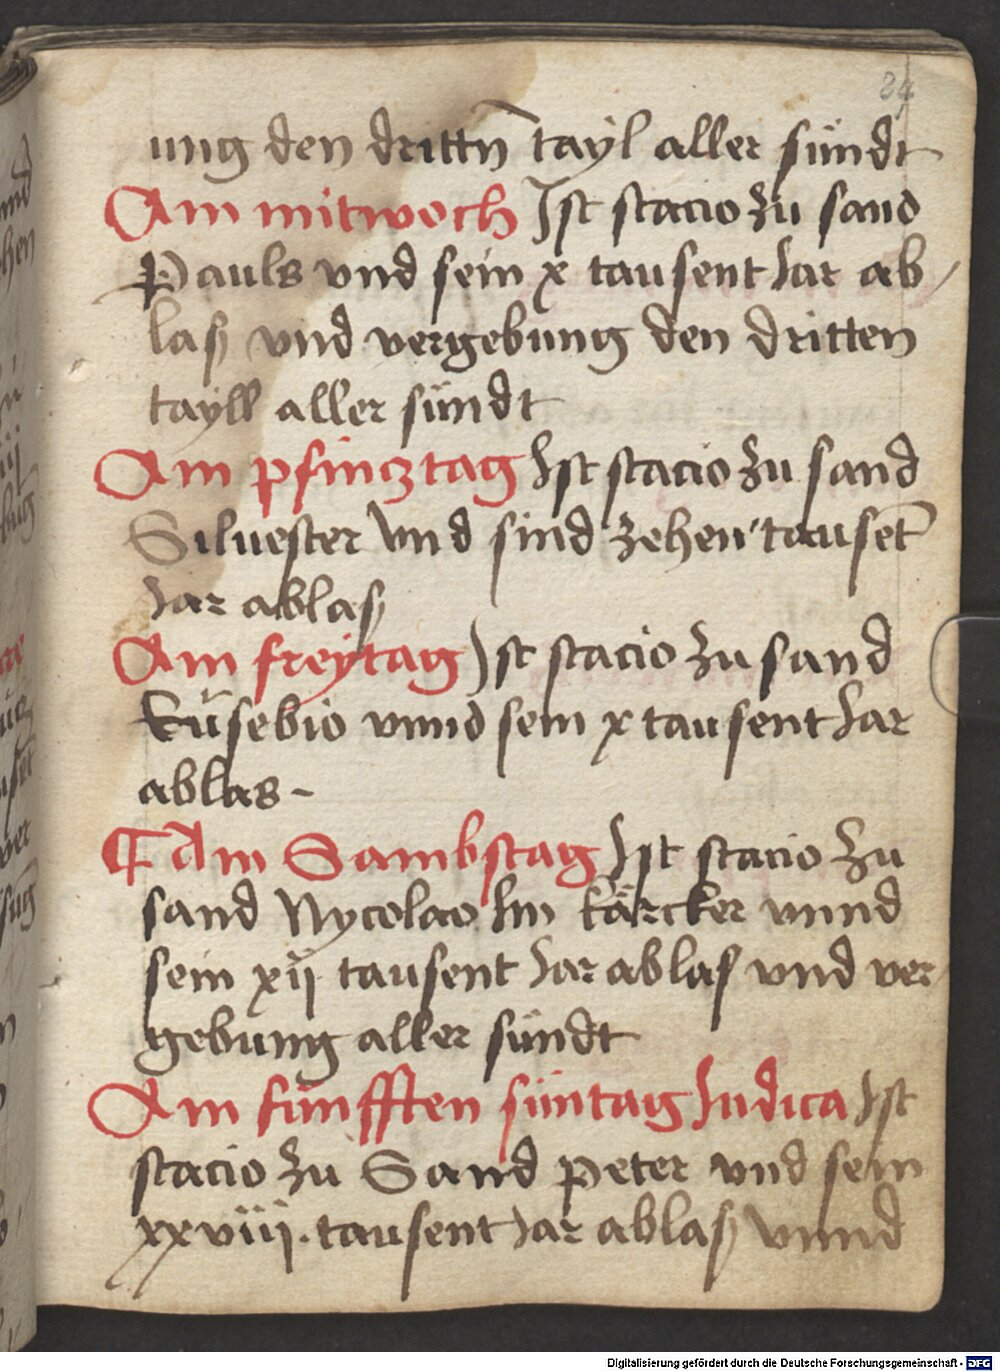 84
ung den drittn̄ tayl aller sündt
Am mitwoch Ist stacio zu sand
Pauls vnd sein x tausent Jar ab/
las vnd vergebung den dritten
tayll aller sündt
Am pfincztag Ist stacio zu sand
Siluester Vnd sind zehen tauset̄
Jar ablas
Am freytag Ist stacio zu sand
Eüsebio vnnd sein x tausent Jar
ablas -
¶ Am Sambstag Ist stacio zu
sand Nycolao Im kärcker vnnd
sein xij tausent Jar ablas vnd ver
gebung aller sündt
Am fünfften süntag Judica Ist
stacio zu Sand peter vnd sein
xxviij. tausent Jar ablas vnnd
Digitalisierung gefördert durch die Deutsche Forschungsgemeinschaft - DFG